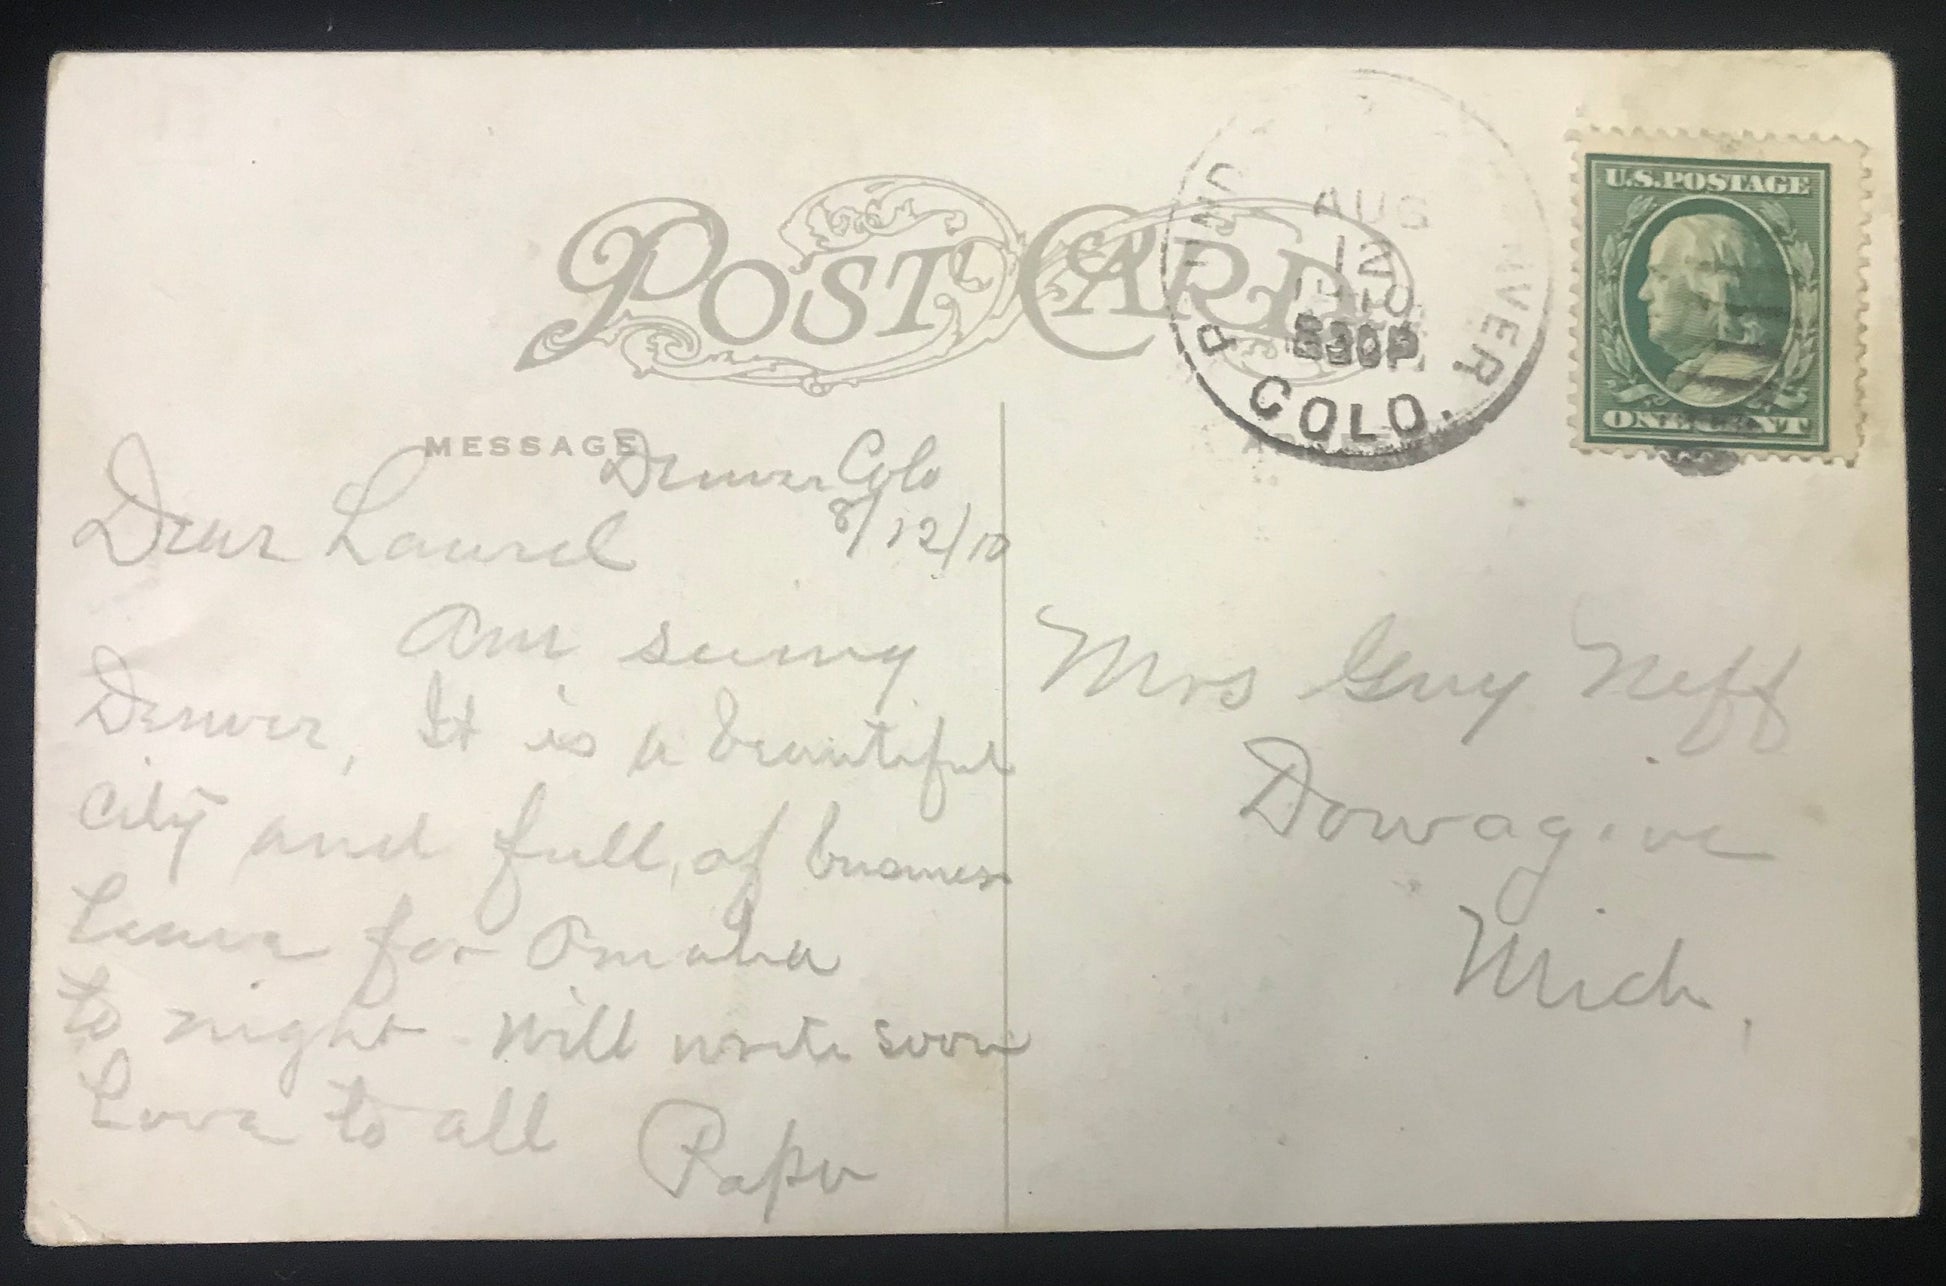 POST CARD
MESSAGE
Denver Colo
8/12/10
Dear Laurel
Am seeing
Denver, It is a beautiful
city and full, of business
Leave for Omaha
to night - Will write soon
Love to all
Papa
AUG
12
1910
530P
DENVER
COLO.
U.S. POSTAGE
ONE CENT
Mrs Guy Neff
Dowagiac
Mich,